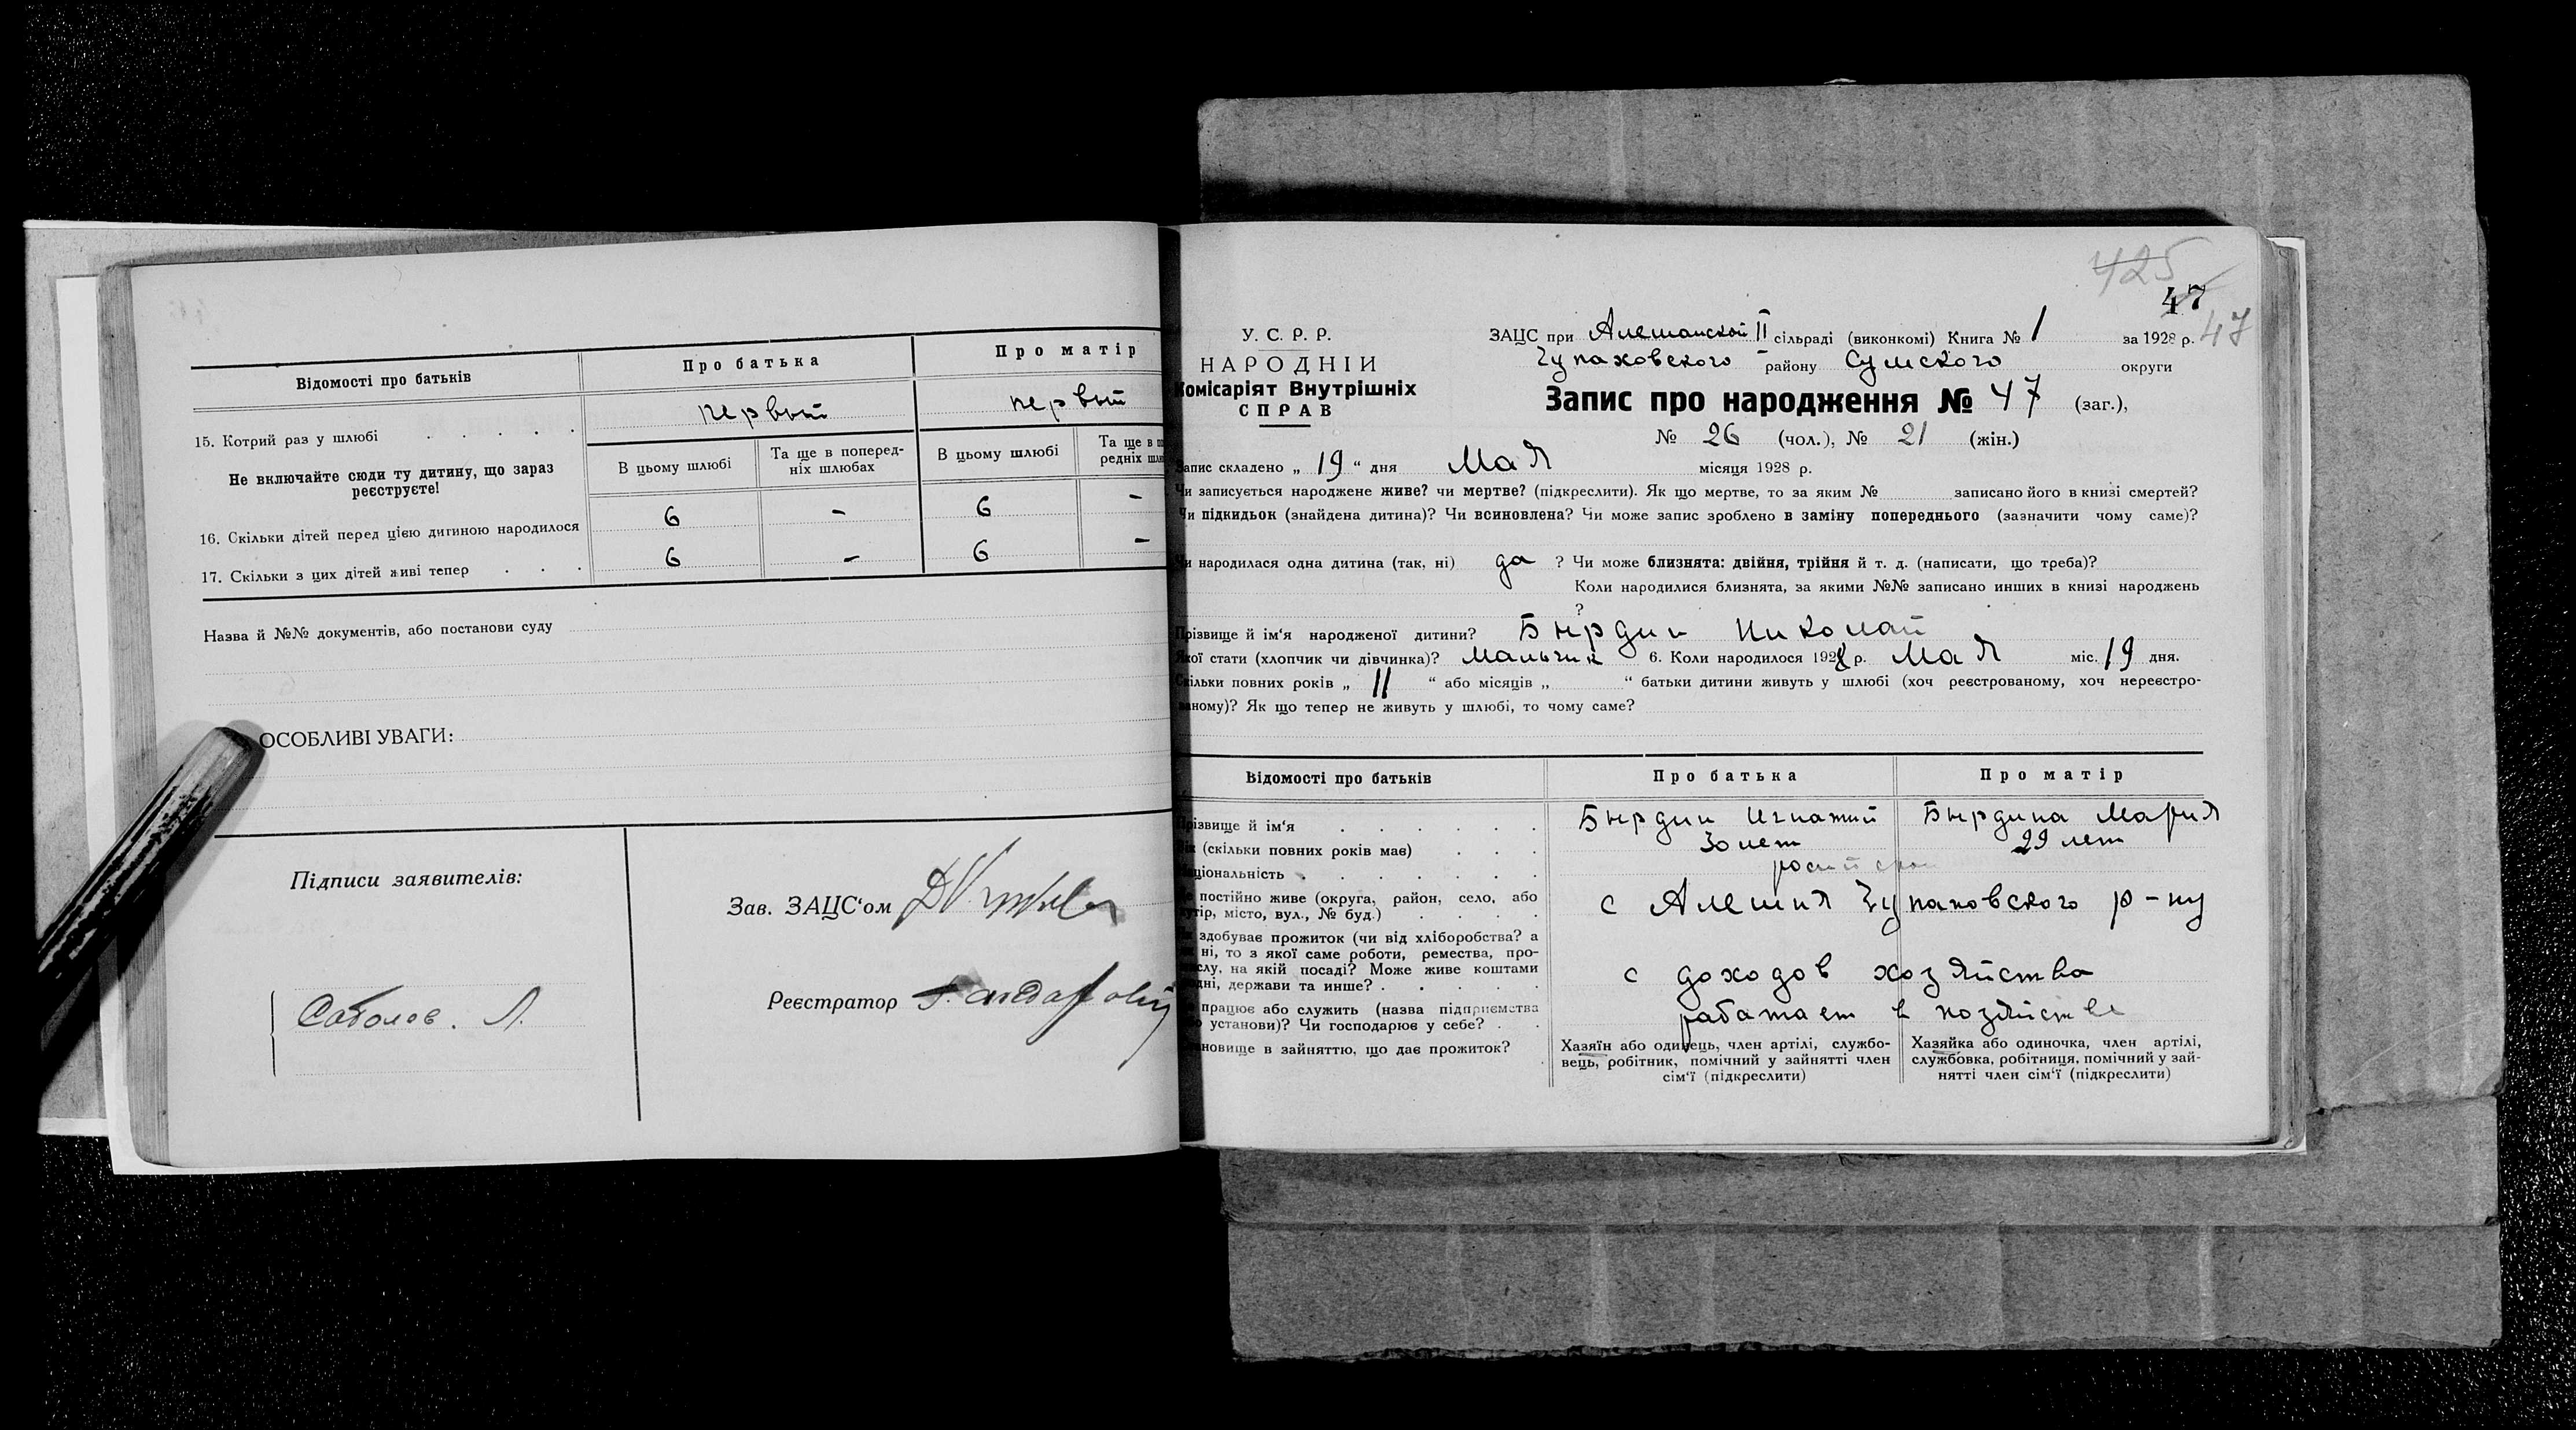 Відомості про батьків
Про батька
Про матір
15. Котрий раз у шлюбі . . . . .
первый
первый
Не включайте сюди ту дитину, що зараз
реєструєте!
В цьому шлюбі
Та ще в поперед-
ніх шлюбах
В цьому шлюбі
Та ще в
редніх
16. Скільки дітей перед цією дитиною народилося
6 - 6 -
17. Скільки з цих дітей живі тепер . . .
6 - 6 -
Назва й №№ документів, або постанови суду
ОСОБЛИВІ УВАГИ:
Підписи заявителів:
Соболев. Л.
Зав. ЗАЦС‘ом
Реєстратор
425
47
47
У. С. Р. Р.
НАРОДНІЙ
Комісаріят Внутрішніх
СПРАВ
ЗАЦС при Алешанской II сільраді (виконкомі) Книга № 1 за 1928 р.
Чупаховского району Сумского округи
Запис про народження № 47 (заг.),
№ 26 (чол.), № 21 (жін.)
Запис складено „ 19 “ дня Мая місяця 1928 р.
Чи записується народжене живе? чи мертве? (підкреслити). Як що мертве, то за яким № записано його в книзі смертей?
Чи підкидьок (знайдена дитина)? Чи всиновлена? Чи може запис зроблено в заміну попереднього (зазначити чому саме)?
Чи народилася одна дитина (так, ні) да ? Чи може близнята: двійня, трійня й т. д. (написати, що треба)?
Коли народилися близнята, за якими №№ записано инших в книзі народжень
?
Прізвище й ім‘я народженої дитини? Бырдин Николай
Якої стати (хлопчик чи дівчинка)? Мальчик 6. Коли народилося 1928 р. Мая міс. 19 дня.
Скільки повних років „ 11 “ або місяців „ “ батьки дитини живуть у шлюбі (хоч реєстрованому, хоч нереєстро-
ваному)? Як що тепер не живуть у шлюбі, то чому саме?
Відомості про батьків
Про батька
Про матір
Прізвище й ім‘я . . . . . .
Бырдин Игнатий
Бырдина Мария
(скільки повних років має) . . .
30 лет
29 лет
національність . . . . . . .
постійно живе (округа, район, село, або
хутір, місто, вул., № буд.) . . . .
с Алешня Чупаховского р-ну
здобуває прожиток (чи від хліборобства? а
ні, то з якої саме роботи, ремества, про-
мислу, на якій посаді? Може живе коштами
рідні, держави та инше? . . . . .
с доходов хозяйства
працює або служить (назва підприємства
установи)? Чи господарює у себе? . .
работает в хозяйстве
становище в зайняттю, що дає прожиток?
Хазяїн або одинець, член артілі, службо-
вець, робітник, помічний у зайнятті член
сім‘ї (підкреслити)
Хазяйка або одиночка, член артілі,
службовка, робітниця, помічний у зай-
нятті член сім‘ї (підкреслити)